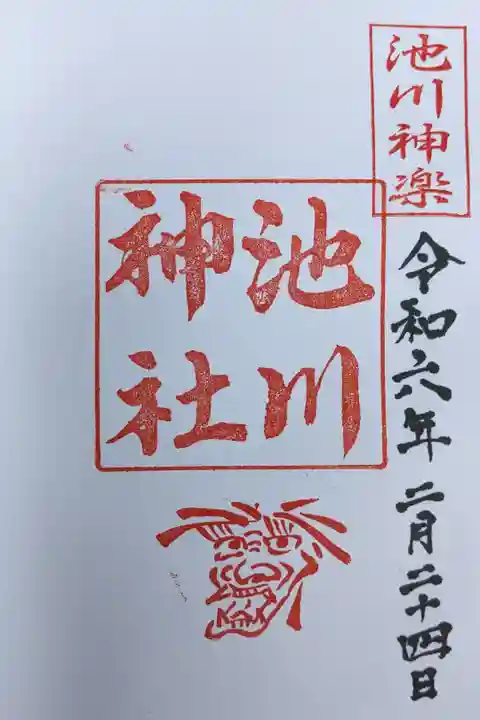 池川神楽
令和六年 二月二十四日
池川
神社